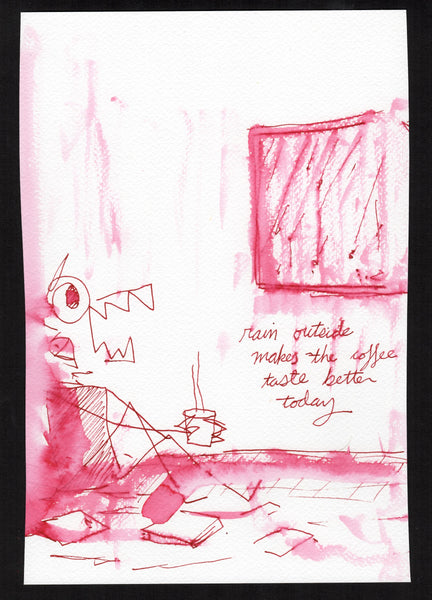 rain outside
makes the coffee
taste better
today